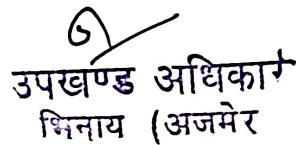 उपखण्ड अधिकारी
भिनाय (अजमेर